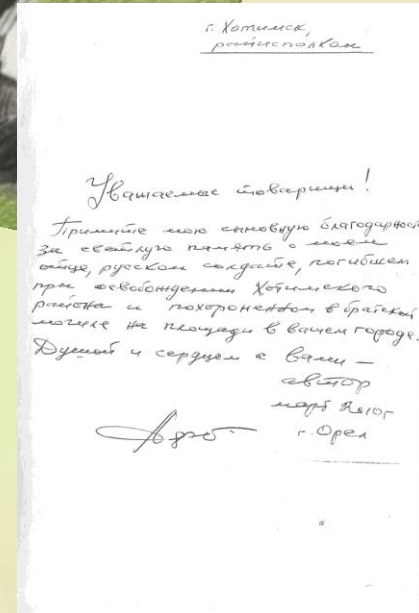 г. Хотимск,
райисполком
Уважаемые товарищи!
Примите мою сыновную благодарность
за светлую память о моем
отце, русском солдате, погибшем
при освобождении Хотимского
района и похороненном в братской
могиле на площади в вашем городе.
Душой и сердцем с вами –
автор
март 2010г
г. Орел